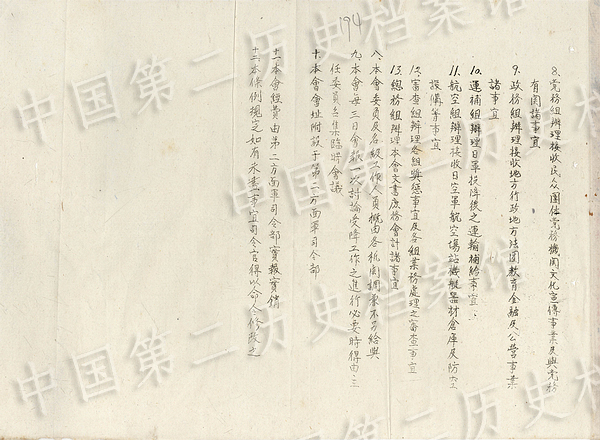 194
8.党務組辦理接收民众團体党務機関文化宣傳事業及與党務
有関諸事宜
9.政務組辦理接收地方行政地方法團教育金融及公营事業
諸事宜
10.運補組辦理日軍投降後之運輸補給事宜
11.航空組辦理接收日空軍航空場站機艇器材倉庫及防空
設備等事宜
12.審查組辦理各組奬懲事宜及各組業務處理之審查事宜
13.總務組辦理本會文書庶務會計諸事宜
八、本會委員及各級工作人員概由各机関調兼不另給與
九、本會每三日會報一次討論受降工作之進行必要時得由主
任委員召集臨時會議
十、本會會址附設于第二方面軍司令部
十一、本會經費由第二方面軍司令部實報實銷
十二、本條例規定如有未盡事宜司令官得以命令修改之
中国第二历史档案馆
中国第二历史档案馆
中国第二历史档案馆